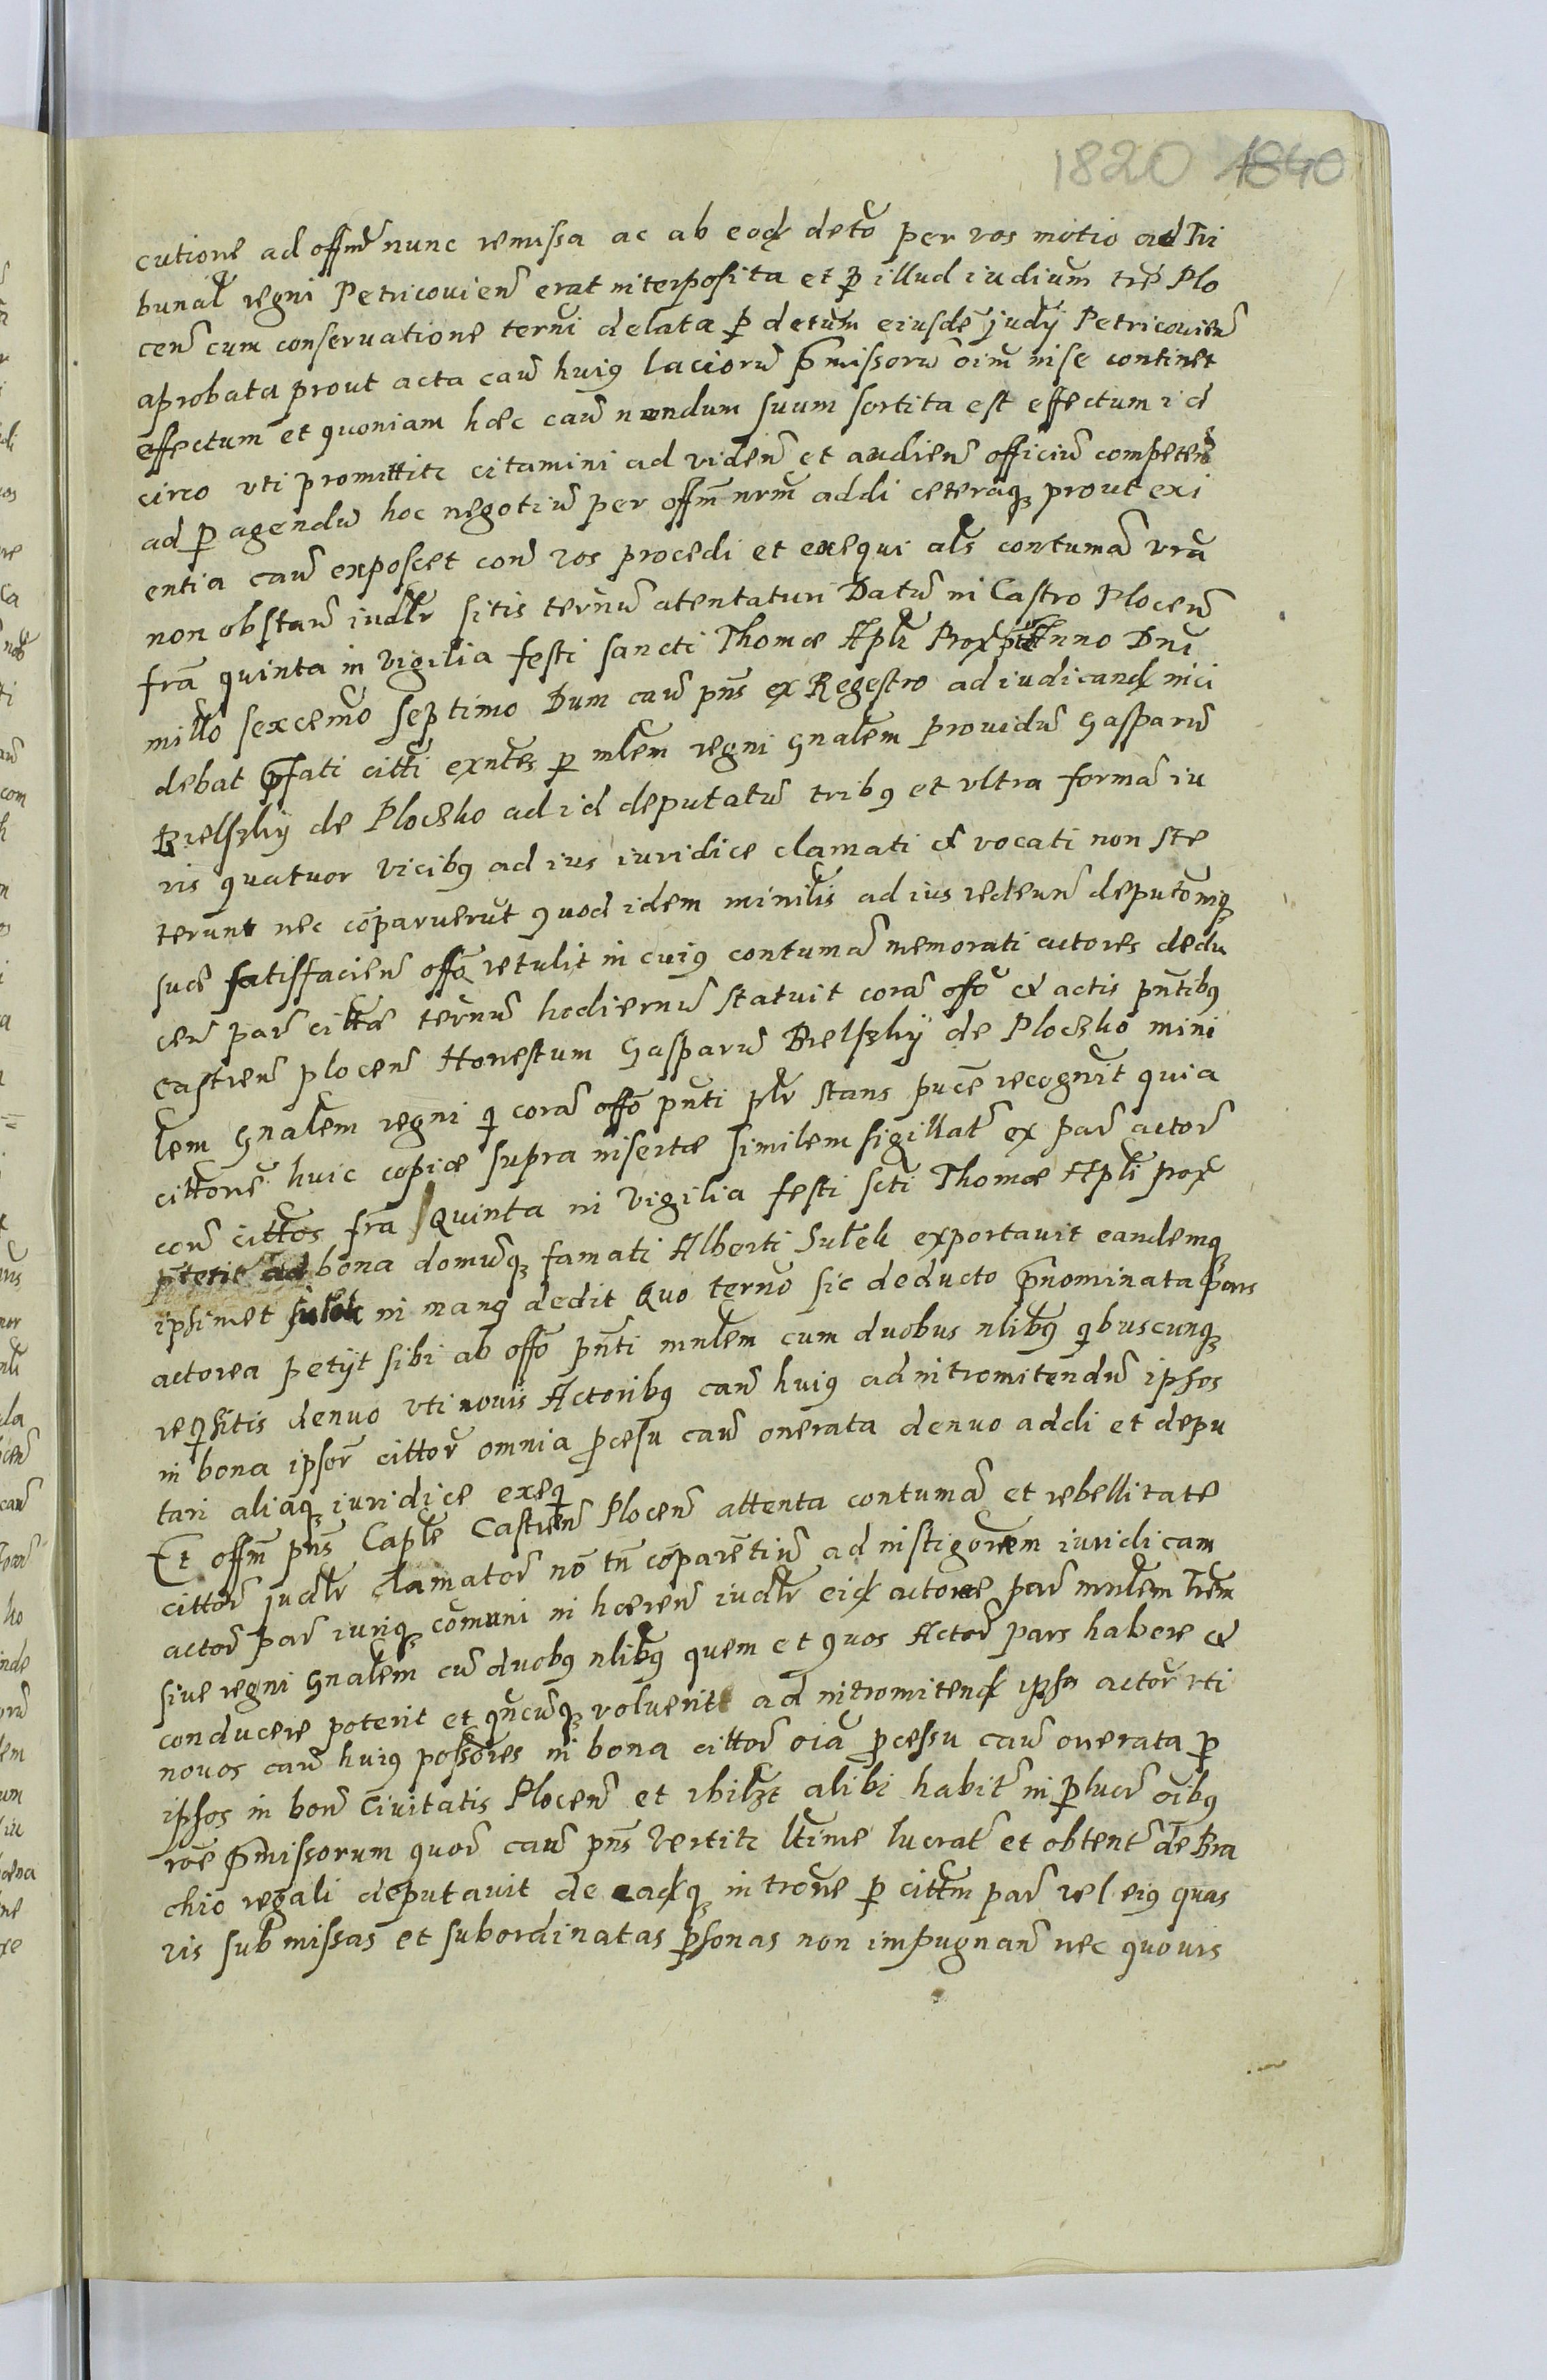 1820 1840
cutione ad offm nunc remissa ac ab eod deto per vos motio ad Tri
bunal regni Petricovien erat interposita et p illud iudium tre Plo
cen cum conservatione terni delata p detum eiusde judy Petricovien
aprobata prout acta caus huius laciorum pmissoru oim in se continet
effectum et quoniam haec caus nondum suum sortita est effectum id
circo uti promittitr citamini ad viden et audien officium competens
ad p agendu hoc negotiu per offm nrm addi ceteraque prout exi
entia caus exposcet con vos procedi et exequi als contuma vra
non obstan iudlr sitis ternu atentaturi Datu in Castro Plocen
fra quinta in vigilia festi sancti Thomae Apli Prox pte Anno Dni
millo sexcemo septimo Dum caus pns ex Regestro ad iudicand inci
debat pfati citti exntes p mlem regni gnalem providu Gasparu
Bielszky de Ploczko ad id deputatu tribus et ultra forma iu
ris quatuor vicibus ad ius iuridice clamati et vocati non ste
terunt nec coparuerut quod idem minilis ad ius redeun deputoniq
suae satisfacien offo retulit in cuius contuma memorati actores dedu
cen par cittae ternu hodiernu statuit cora offo et actis pntibus
castren plocen Honestum Gasparu Bielszky de Ploczko mini
lem gnalem regni qi cora offo pnti plr stans puce recognit quia
cittone huic copiae supra insertae similem sigillat ex par actor
con cittos fra quinta in vigilia festi scti Thomae Apli prox
pterit ad bona domuque famati Alberti Sulek exportavit eandemque
ipsimet Sulek in manus dedit Quo terno sic deducto pnominata pars
actorea petyt sibi ab offo pnti mnlem cum duobus nlibus qibuscunque
reqisitis denuo uti novis Actoribus caus huius ad intromitendu ipsos
in bona ipsor cittor omnia pcesu caus onerata denuo addi et depu
tari aliaque iuridice exeqi
Et offm pns Caple Castren Plocen attenta contuma et rebellitate
cittor judlr clamator no tn coparentiu ad instigonem iuridicam
actor par iurique comuni in haeren iudlr eid actorae par mnlem trem
sive regni gnalem cu duobus nlibus quem et quos Actor pars habere et
conducere poterit et qncunque voluerit ad intromitend ipsa actor uti
novos caus huius possores in bona cittor oia pcessu caus onerata p
ipsos in bon civitatis Plocen et vbilzt alibi habit in p lucr oibus
roe pmissorum quor caus pns vertitr ltime lucrat et obtent de Bra
chio regali deputavit de eadque introne p cittm par vel eius quas
vis submissas et subordinatas psonas non impugnan nec quovis